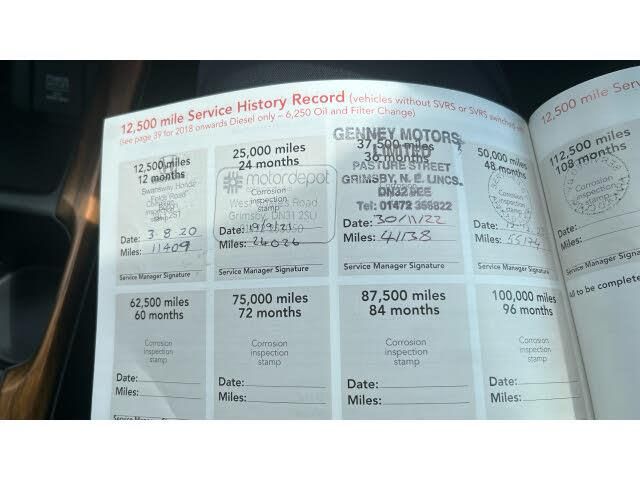 12,500 mile Service History Record (vehicles without SVRS or SVRS switched off
(see page 39 for 2018 onwards Diesel only – 6,250 Oil and Filter Change)
12,500 miles
12 months
Swansway Honda
Date: 3.8.20
Miles: 11409
Service Manager Signature
25,000 miles
24 months
motordepot
Corrosion
inspection
stamp
Road
Grimsby, DN31 2SU
Date: 19/9/21
Miles: 26026
Service Manager Signature
37,500 miles
36 months
GENNEY MOTORS
LIMITED
PASTURE STREET
GRIMSBY, N. E. LINCS.
Tel: 01472
Date: 30/11/22
Miles: 41138
Service Manager Signature
50,000 miles
48 months
Date:
Miles: 55174
Service Manager Signature
62,500 miles
60 months
Corrosion
inspection
stamp
Date:
Miles:
Service Manager Signature
75,000 miles
72 months
Corrosion
inspection
stamp
Date:
Miles:
87,500 miles
84 months
Corrosion
inspection
stamp
Date:
Miles:
100,000 miles
96 months
Corrosion
inspection
stamp
Date:
Miles:
12,500 mile Serv
112,500 miles
108 months
Corrosion
inspection
stamp
Date:
Miles:
Service Manager Signa
All to be complete